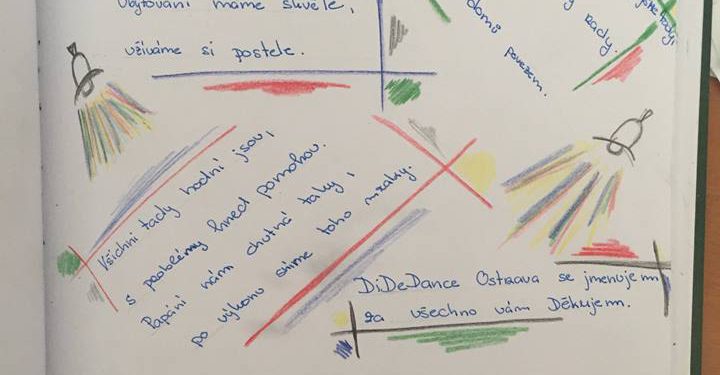 Ubytování máme skvělé,
užíváme si postele.
domů povezem.
rady.
Všichni tady hodní jsou,
s problémy hned pomohou.
Papání nám chutná taky,
po výkonu sníme toho mraky.
DiDeDance Ostrava se jmenujem
za všechno vám Děkujem.